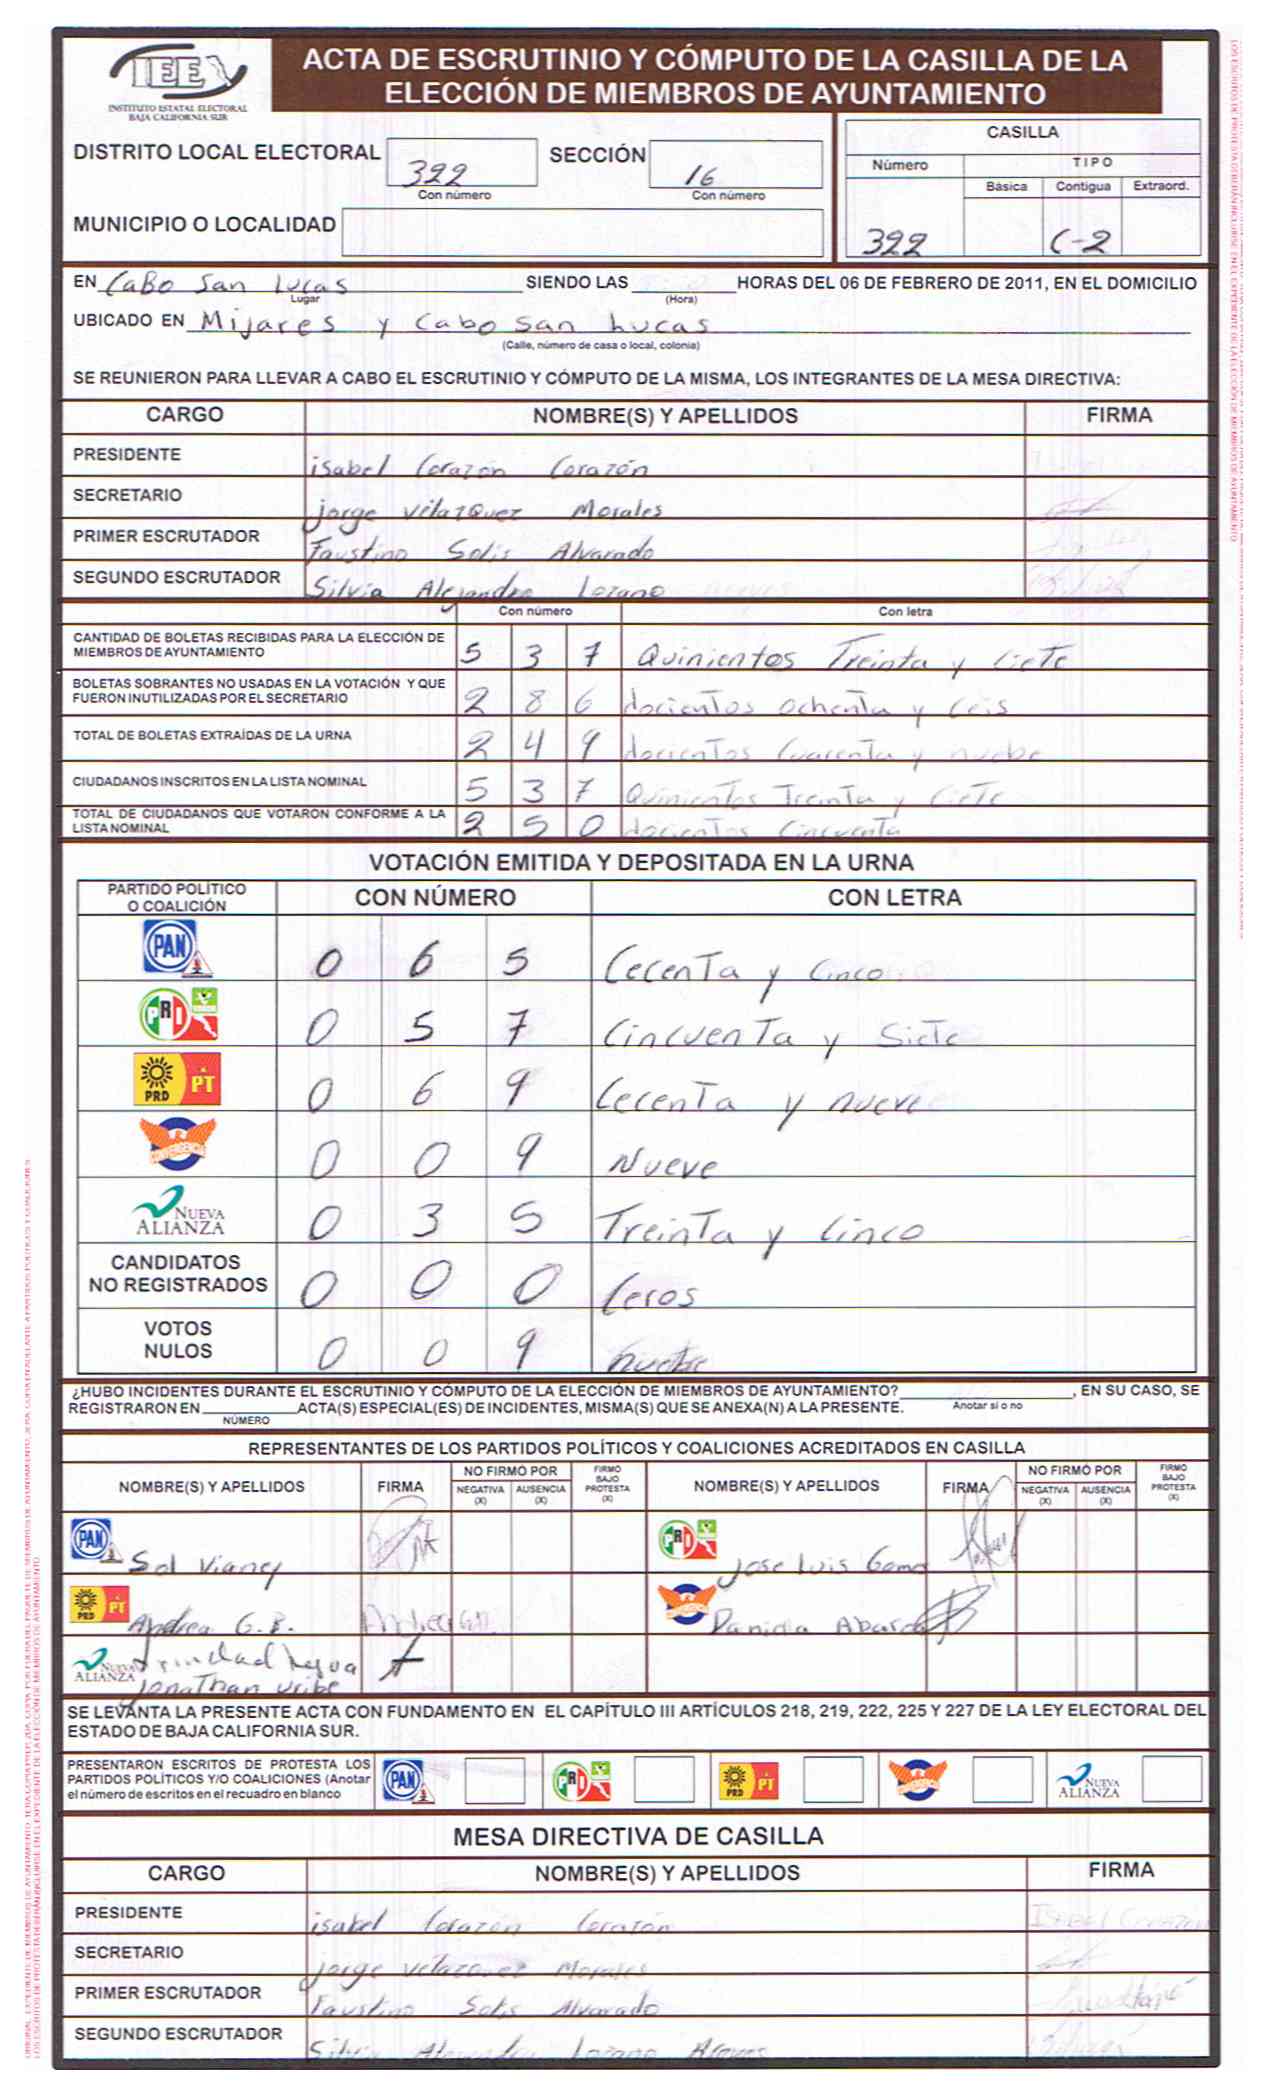 IEE
INSTITUTO ESTATAL ELECTORAL
BAJA CALIFORNIA SUR
ACTA DE ESCRUTINIO Y CÓMPUTO DE LA CASILLA DE LA
ELECCIÓN DE MIEMBROS DE AYUNTAMIENTO
DISTRITO LOCAL ELECTORAL 322 SECCIÓN 16
Con número Con número
MUNICIPIO O LOCALIDAD
CASILLA
Número TIPO
Básica Contigua Extraord.
322 C-2
EN Cabo San Lucas SIENDO LAS HORAS DEL 06 DE FEBRERO DE 2011, EN EL DOMICILIO
Lugar (Hora)
UBICADO EN Mijares y Cabo San Lucas
(Calle, número de casa o local, colonia)
SE REUNIERON PARA LLEVAR A CABO EL ESCRUTINIO Y CÓMPUTO DE LA MISMA, LOS INTEGRANTES DE LA MESA DIRECTIVA:
CARGO NOMBRE(S) Y APELLIDOS FIRMA
PRESIDENTE isabel Corazón Corazón
SECRETARIO jorge velazquez Morales
PRIMER ESCRUTADOR Faustino Solis Alvarado
SEGUNDO ESCRUTADOR Silvia Alejandra Lozano
Con número Con letra
CANTIDAD DE BOLETAS RECIBIDAS PARA LA ELECCIÓN DE
MIEMBROS DE AYUNTAMIENTO 5 3 7 Quinientos Treinta y CieTe
BOLETAS SOBRANTES NO USADAS EN LA VOTACIÓN Y QUE
FUERON INUTILIZADAS POR EL SECRETARIO 2 8 6 docientos ochenta y Ceis
TOTAL DE BOLETAS EXTRAÍDAS DE LA URNA 2 4 9 docientos Cuarenta y nuebe
CIUDADANOS INSCRITOS EN LA LISTA NOMINAL 5 3 7 Quinientos Treinta y CieTe
TOTAL DE CIUDADANOS QUE VOTARON CONFORME A LA
LISTA NOMINAL 2 5 0 docientos Cincuenta
VOTACIÓN EMITIDA Y DEPOSITADA EN LA URNA
PARTIDO POLÍTICO
O COALICIÓN CON NÚMERO CON LETRA
PAN 0 6 5 CecenTa y Cinco
PRI 0 5 7 CincuenTa y SieTe
PRD PT 0 6 9 CecenTa y nueve
CONVERGENCIA 0 0 9 Nueve
NUEVA ALIANZA 0 3 5 TreinTa y Cinco
CANDIDATOS
NO REGISTRADOS 0 0 0 Ceros
VOTOS
NULOS 0 0 9 nuebe
¿HUBO INCIDENTES DURANTE EL ESCRUTINIO Y CÓMPUTO DE LA ELECCIÓN DE MIEMBROS DE AYUNTAMIENTO? , EN SU CASO, SE
REGISTRARON EN ACTA(S) ESPECIAL(ES) DE INCIDENTES, MISMA(S) QUE SE ANEXA(N) A LA PRESENTE. Anotar sí o no
NÚMERO
REPRESENTANTES DE LOS PARTIDOS POLÍTICOS Y COALICIONES ACREDITADOS EN CASILLA
NOMBRE(S) Y APELLIDOS FIRMA NO FIRMÓ POR NEGATIVA (X) AUSENCIA (X) FIRMÓ BAJO PROTESTA (X) NOMBRE(S) Y APELLIDOS FIRMA NO FIRMÓ POR NEGATIVA (X) AUSENCIA (X) FIRMÓ BAJO PROTESTA (X)
PAN Sol Viancy PRI Jose Luis Gama
PRD PT Andrea G.B. Andrea G.B. CONVERGENCIA Daniela
NUEVA ALIANZA Trinidad
Jonathan uribe
SE LEVANTA LA PRESENTE ACTA CON FUNDAMENTO EN EL CAPÍTULO III ARTÍCULOS 218, 219, 222, 225 Y 227 DE LA LEY ELECTORAL DEL
ESTADO DE BAJA CALIFORNIA SUR.
PRESENTARON ESCRITOS DE PROTESTA LOS
PARTIDOS POLÍTICOS Y/O COALICIONES (Anotar
el número de escritos en el recuadro en blanco
PAN PRI PRD PT CONVERGENCIA NUEVA ALIANZA
MESA DIRECTIVA DE CASILLA
CARGO NOMBRE(S) Y APELLIDOS FIRMA
PRESIDENTE isabel Corazón Corazón Isabel Corazon
SECRETARIO jorge velazquez Morales
PRIMER ESCRUTADOR Faustino Solis Alvarado
SEGUNDO ESCRUTADOR Silvia Alejandra Lozano